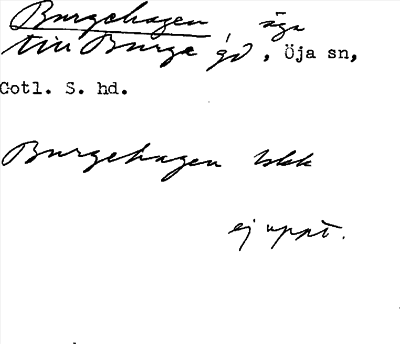 Burgehagen, äga
till Burge gd, Öja sn,
Gotl. S. hd.
Burgehagen 1skk
ej uppt.